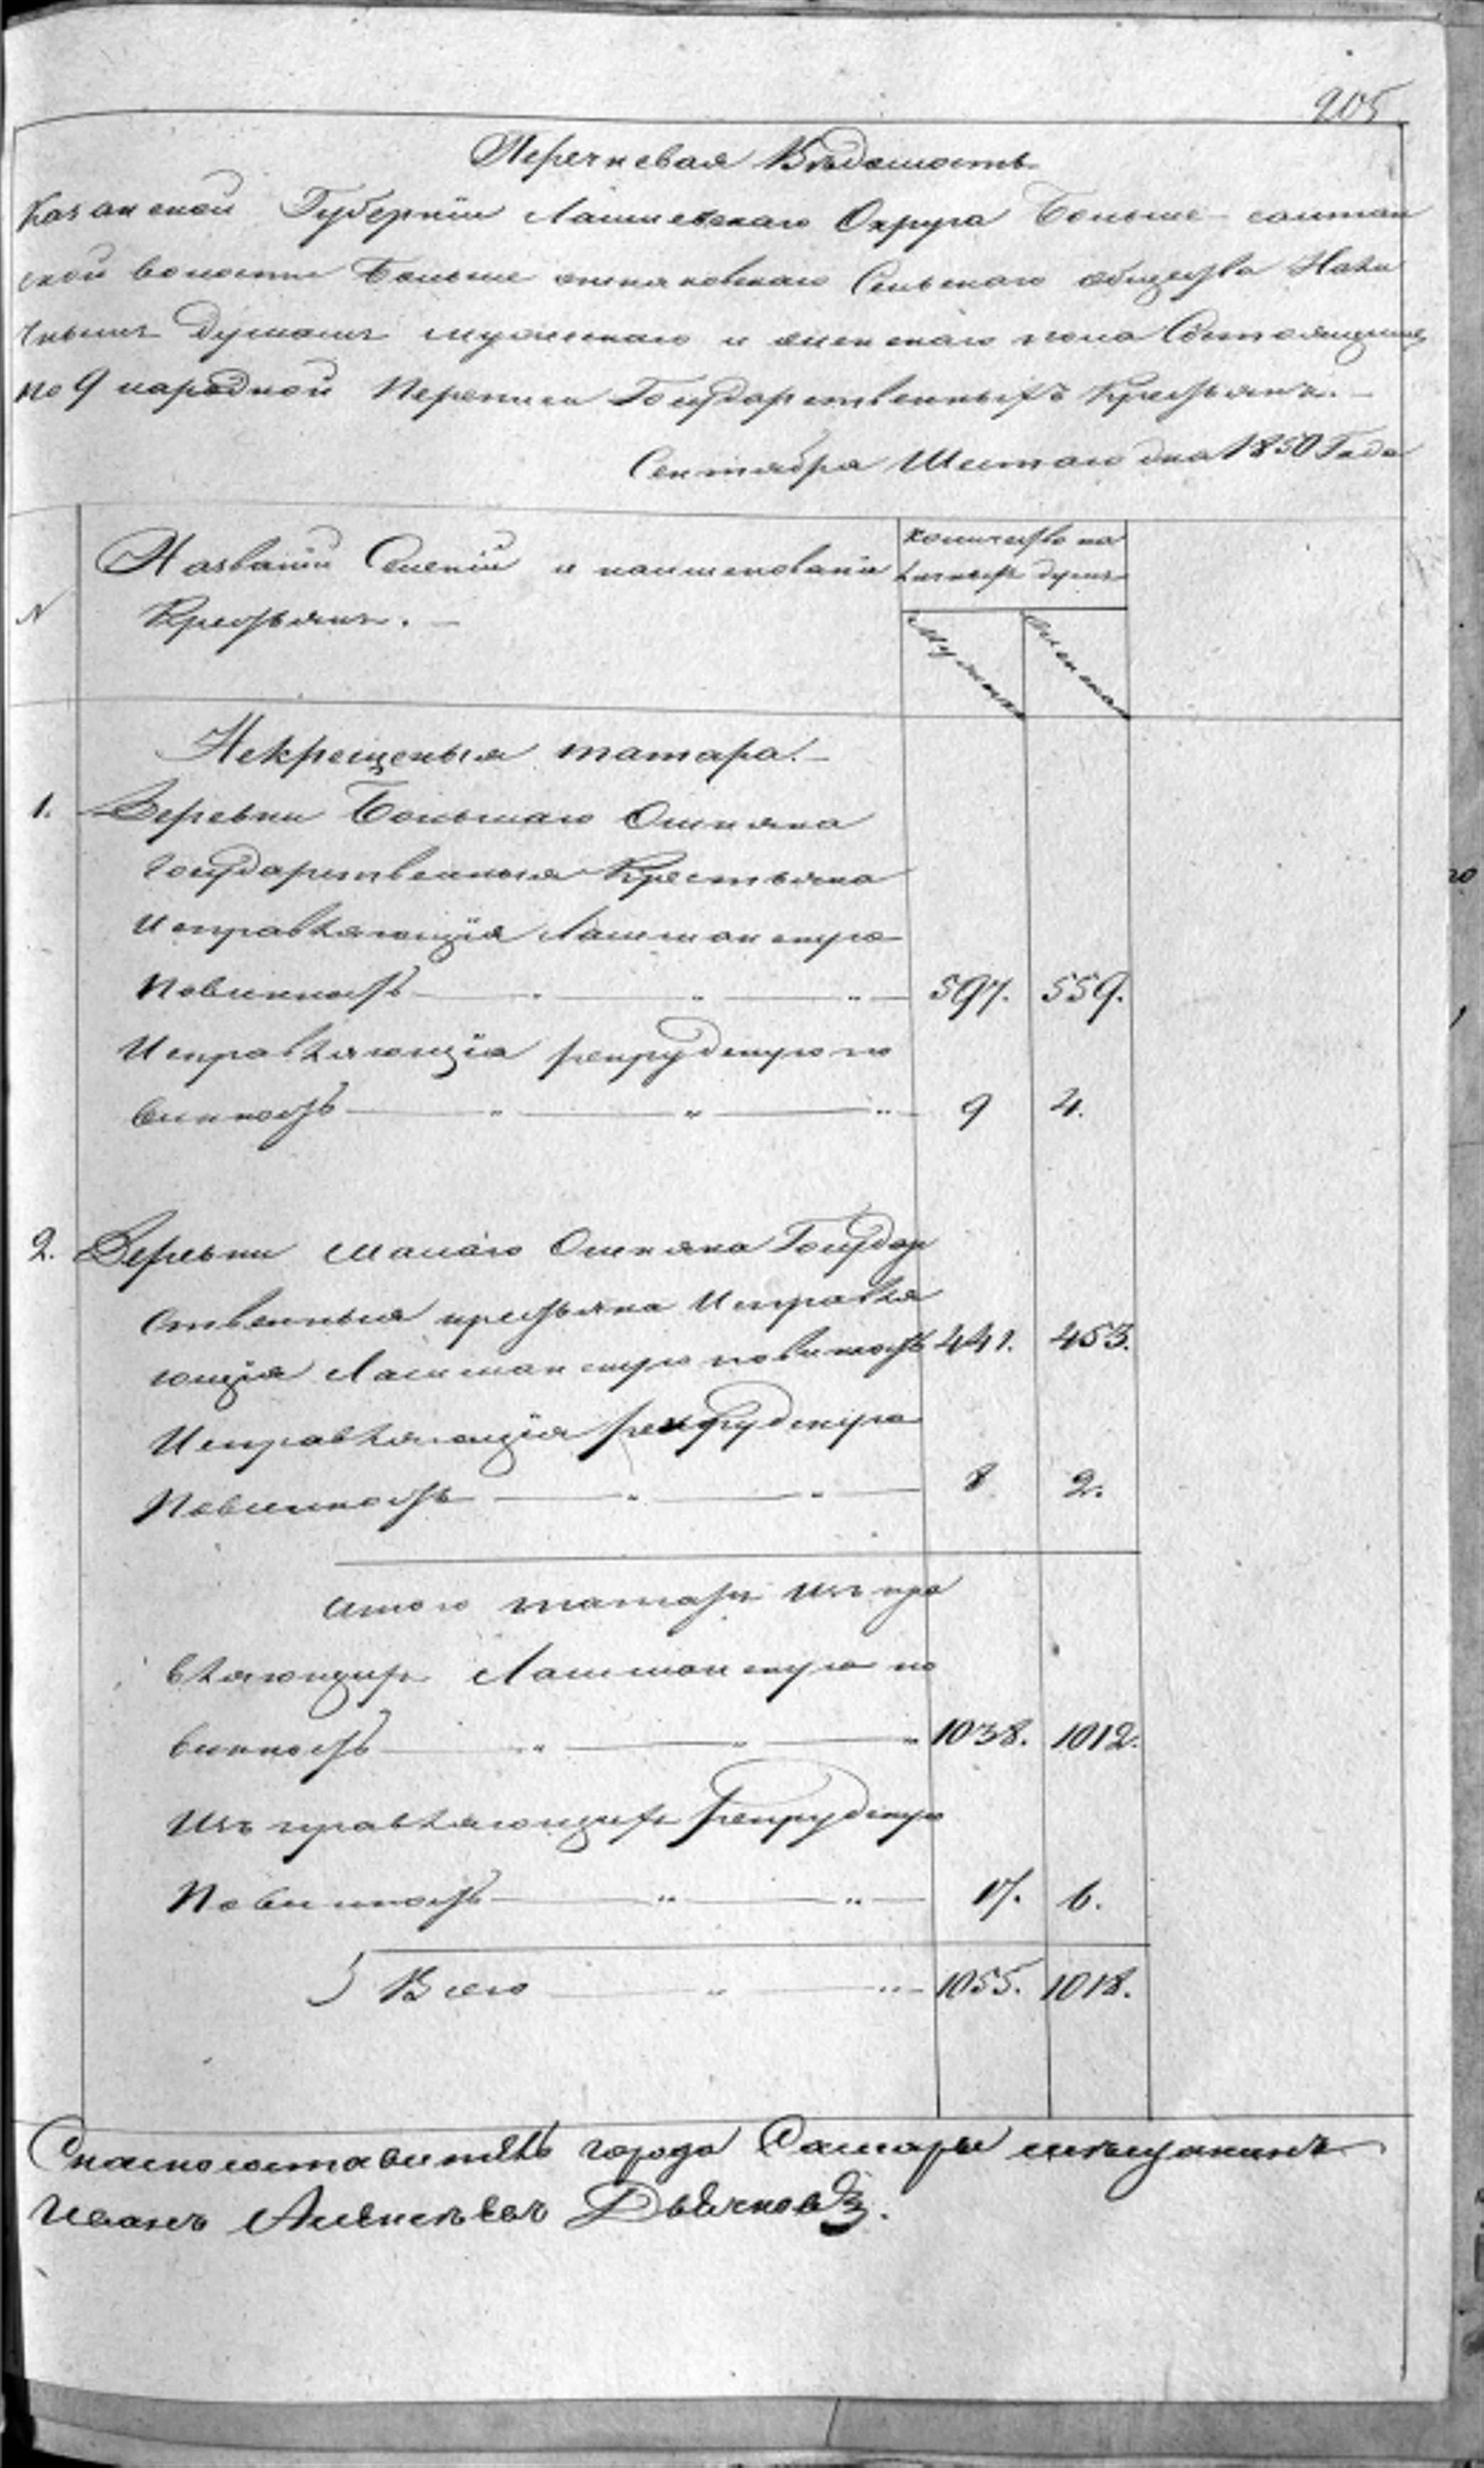 205
Перечневая Вѣдомость
Казанской Губерніи Лаишевскаго Округа Больше-салтан
ской волости Больше ошняковскаго Сельскаго общества Нали
чнымъ Душамъ мужескаго и женскаго пола Состоящимъ
по 9 народной Переписи Государственныхъ Крестьянъ.—
Сентября Шестаго дня 1850 Года
N
Названіи Селеній и наименованіи
Крестьянъ.—
количество на
личныхъ душъ
Мужска
Женска
Некрещеныя татара.—
1. Деревни Большаго Ошняка
Государственныя Крестьяна
Исправляющія Лашманскую
Повинность 597. 559.
Исправляющія рекрудскую по
винность 9 4.
2. Деревни Малаго Ошняка Государ
ственныя крестьяна Исправля
ющія Лашманскую повиность 441. 453.
Исправляющія рекрудскую
Повинность 8 2.
Итого татаръ Изъ пра
вляющихъ Лашманскую по
винность 1038. 1012.
Изъ правляющихъ рекрудскую
Повинность 17. 6.
Всего 1055. 1018.
Скаскосоставитель города Самары мѣщанинъ
Иванъ Алексѣевъ